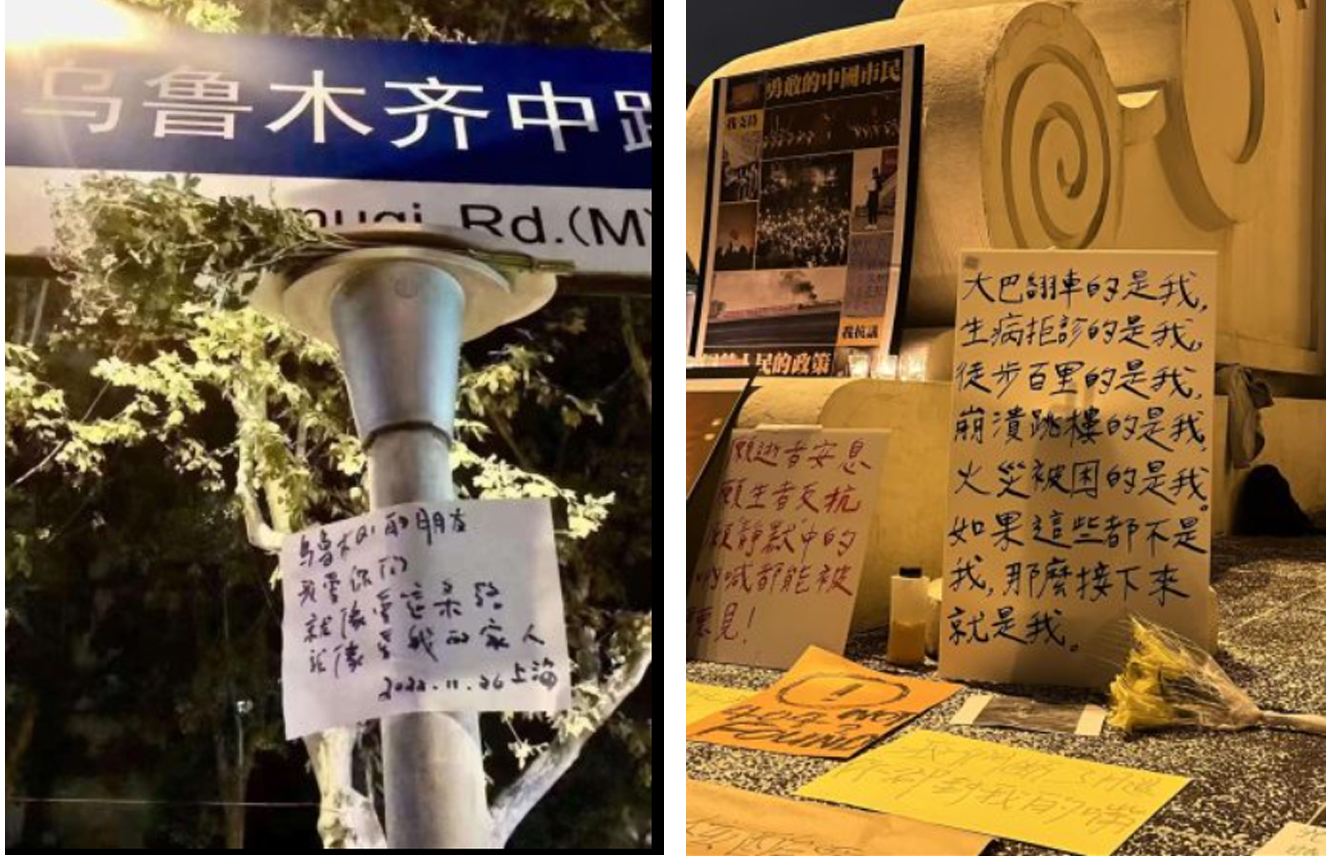 乌鲁木齐中路
Rd.(M)
乌鲁木齐的朋友
我爱你们
就像爱这条路
就像爱我的家人
2022.11.26 上海
勇敢的中國市民
我支持
我抗議
人民的政策
大巴翻車的是我，
生病拒診的是我，
徒步百里的是我，
崩潰跳樓的是我，
火災被困的是我。
如果這些都不是
我，那麼接下來
就是我。
願逝者安息
願生者反抗
願靜默中的
吶喊都能被
聽見！
!
404 NOT
FOUND